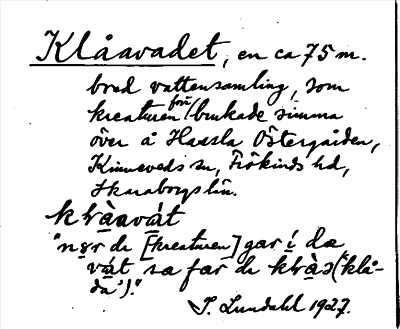 Klåavadet, en ca 75 m.
bred vattensamling, som
kreaturen förr brukade simma
över å Hassla Östergården,
Kinneveds sn, Frökinds hd,
Skaraborgs län.
klràavát
"nær de [kreaturen] gar í dæ
vát sa far de klràs ("klå-
da")."
S. Lundahl 1927.